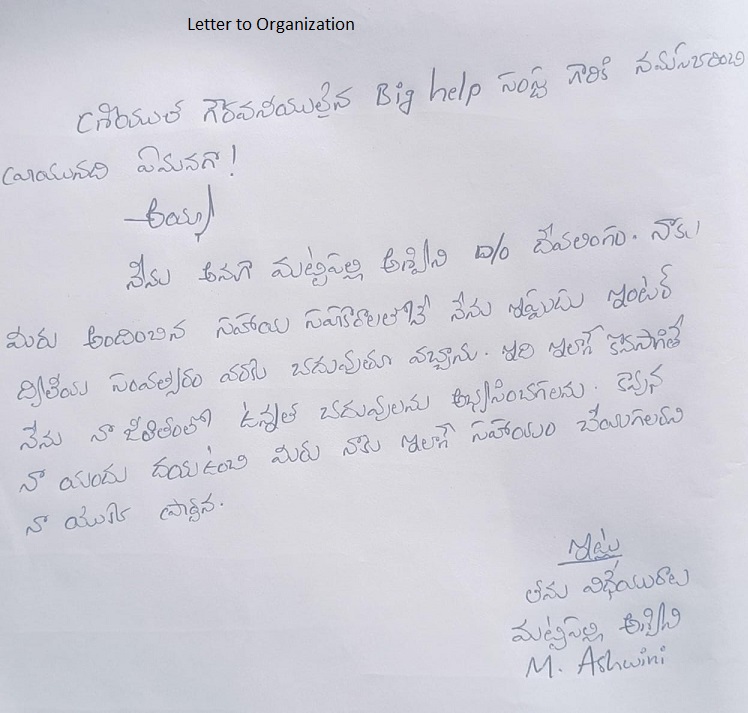 Letter to Organization
శ్రీయుత గౌరవనీయులైన Big help సంస్థ గారికి నమస్కరించి
వ్రాయునది ఏమనగా!
ఆయ్యా
నేను అనగా మట్టిపల్లి అశ్విని D/o దేవలింగం. నాకు
మీరు అందించిన సహాయ సహకారాలతోనే నేను ఇప్పుడు ఇంటర్
ద్వితీయ సంవత్సరం వరకు చదువుతూ వచ్చాను. ఇది ఇలాగే కొనసాగితే
నేను నా జీవితంలో ఉన్నత చదువులను అభ్యసించగలను.
నా యందు దయఉంచి మీరు నాకు ఇలాగే సహాయం చేయగలరని
నా యొక్క ప్రార్థన.
ఇట్లు
తమ విధేయురాలు
మట్టిపల్లి అశ్విని
M. Ashwini